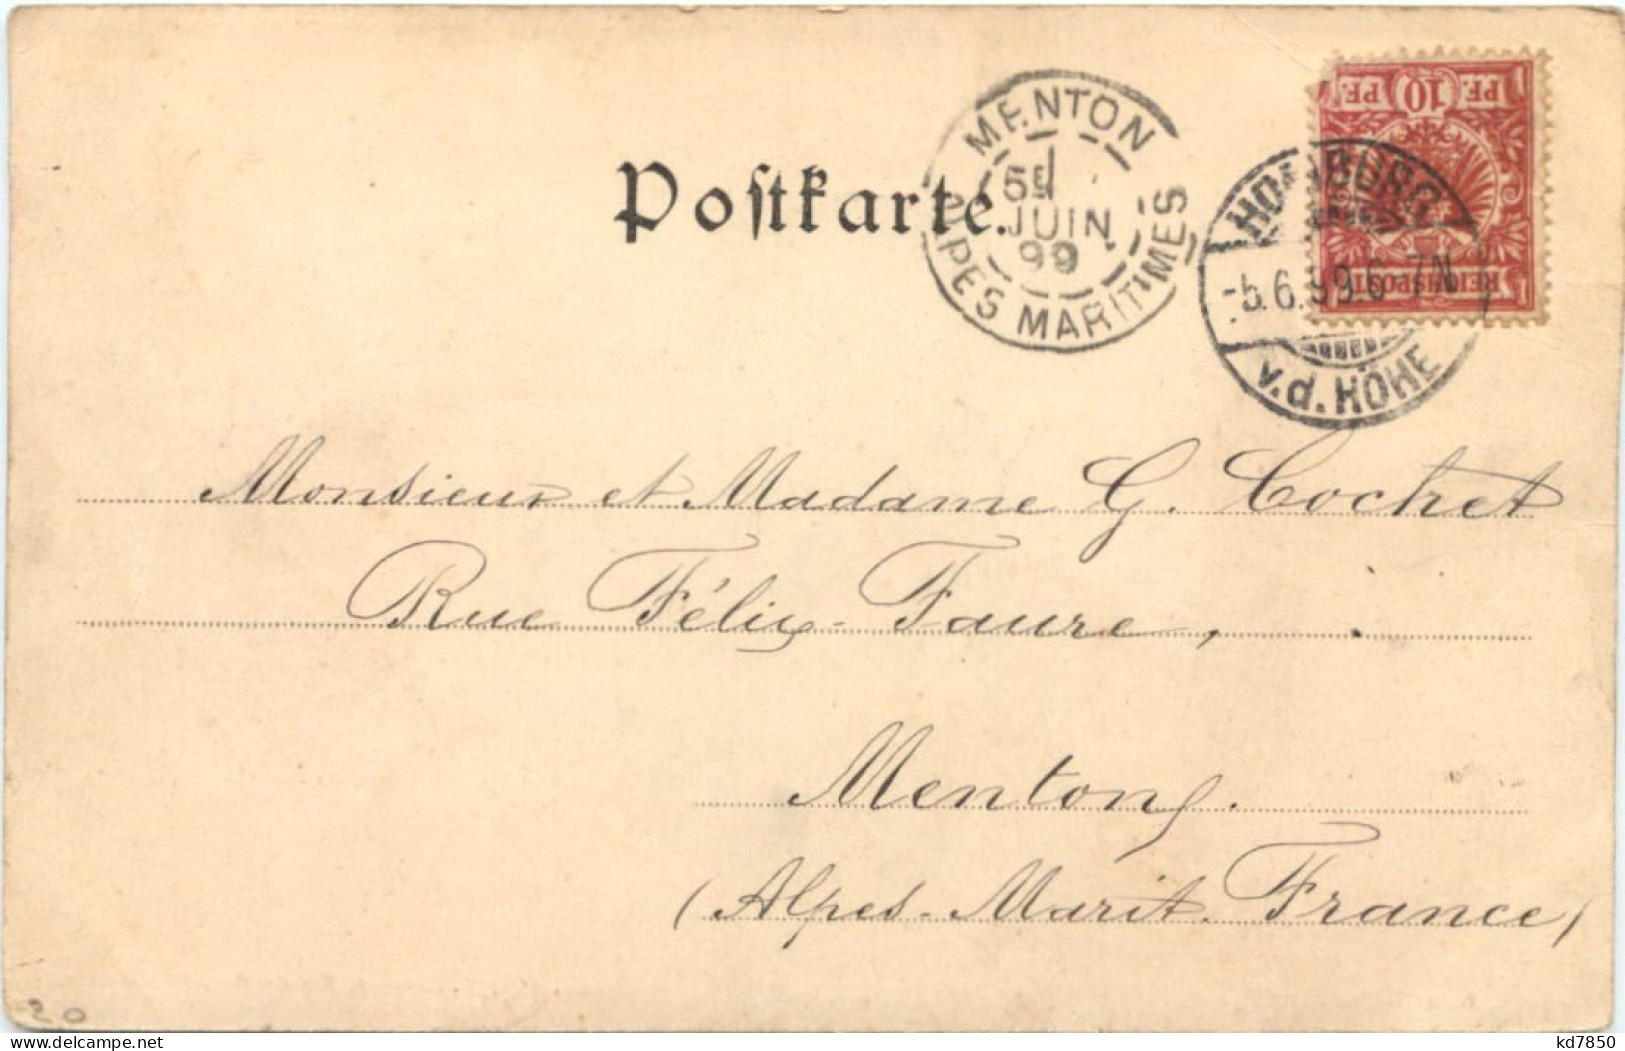 Postkarte.
MENTON
5E
JUIN
99
ALPES MARITIMES
PF. 10 PF.
REICHSPOST
HOMBURG
-5.6.99.6-7N
v.d. HÖHE
Monsieur et Madame G. Cochet
Rue Félix-Faure,
Menton.
(Alpes-Marit. France)
20
kd7850